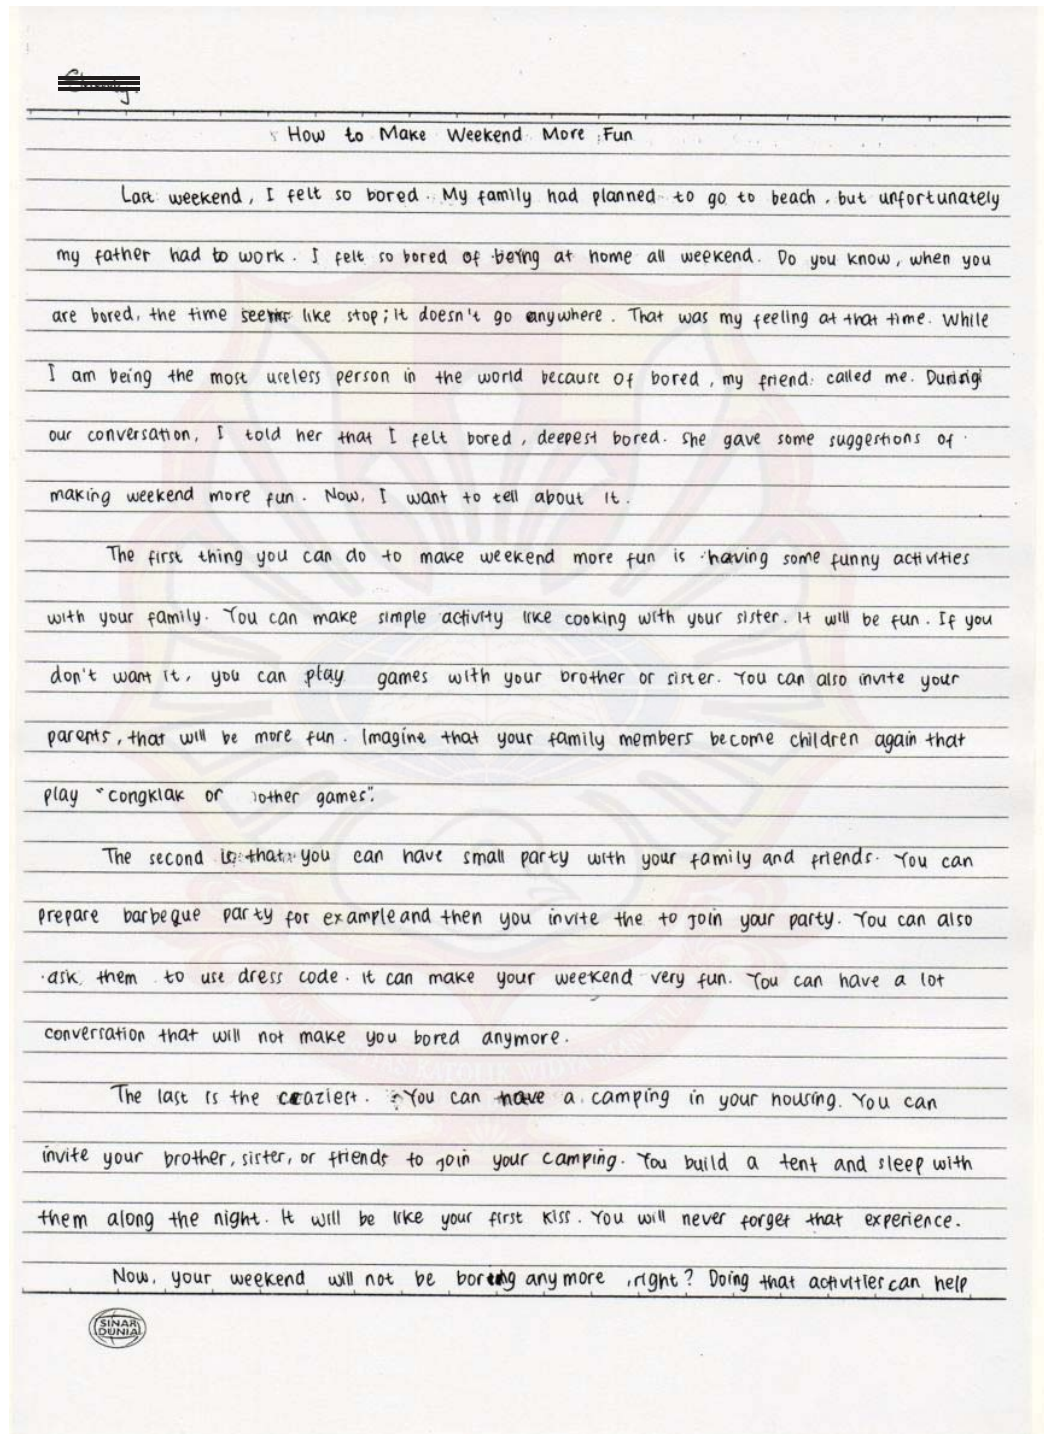 How to Make Weekend More Fun
Last weekend, I felt so bored. My family had planned to go to beach, but unfortunately
my father had to work. I felt so bored of being at home all weekend. Do you know, when you
are bored, the time seems like stop; it doesn't go anywhere. That was my feeling at that time. While
I am being the most useless person in the world because of bored, my friend called me. During
our conversation, I told her that I felt bored, deepest bored. She gave some suggestions of
making weekend more fun. Now, I want to tell about it.
The first thing you can do to make weekend more fun is having some funny activities
with your family. You can make simple activity like cooking with your sister. It will be fun. If you
don't want it, you can play games with your brother or sister. You can also invite your
parents, that will be more fun. Imagine that your family members become children again that
play "congklak or other games".
The second is that you can have small party with your family and friends. You can
prepare barbeque party for example and then you invite the to join your party. You can also
ask them to use dress code. It can make your weekend very fun. You can have a lot
conversation that will not make you bored anymore.
The last is the craziest. You can have a camping in your housing. You can
invite your brother, sister, or friends to join your camping. You build a tent and sleep with
them along the night. It will be like your first kiss. You will never forget that experience.
Now, your weekend will not be boring any more, right? Doing that activities can help
SINAR
DUNIA